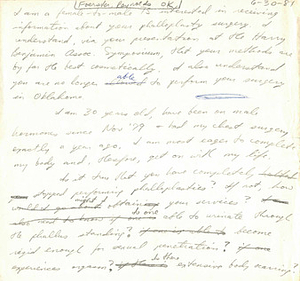 [Foerster, Reynolds OK] 6-30-81
I am a female-to-male interested in receiving
information about your phalloplasty surgery. I
understand, via your presentation at the Harry
Benjamin Assoc. Symposium, that your methods are
by far the best cosmetically. I also understand
you are no longer able to perform your surgery
in Oklahoma.
I am 30 years old, have been on male
hormones since Nov '79 & had my chest surgery
exactly a year ago. I am most eager to complete
my body and, therefore, get on with my life.
Is it true that you have completely
stopped performing phalloplasties? If not, how
might I obtain your services?
able to urinate through
the phallus standing? become
rigid enough for sexual penetration?
experience orgasm? extensive body scarring?